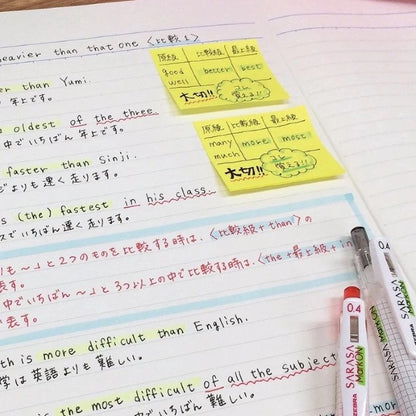 heavier than that one 〈比較1〉
than Yumi.
年上です。
oldest of the three
中でいちばん 年上です。
faster than Sinji.
よりも 速く 走ります。
(the) fastest in his class
でいちばん 速く 走ります。
原級 比較級 最上級
good well better best
大切!! コレ 覚える!!
原級 比較級 最上級
many much more most
大切!! コレ 覚える!!
も〜」と2つのものを比較する時は、〈比較級+than〉の
表す。
中でいちばん〜」と3つ以上の中で比較する時は、〈the+最上級+in
表す。
is more difficult than English.
学は 英語よりも 難しい。
is the most difficult of all the subject
いちばん 難しい。
0.4
SARASA
MARK ON
ZEBRA
0.4
SARASA
MARK ON
ZEBRA